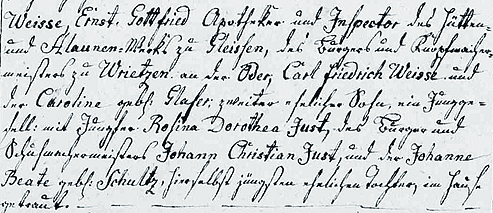 Weisse, Ernst Gottfried Apotheker und Inspector des Hütten-
und Alaunen-Werks zu Gleissen, des Bürgers und Knopfmacher-
meisters zu Wrietzen an der Oder, Carl Friedrich Weisse und
der Caroline geb: Glaser, zweiter ehelicher Sohn, ein Jungge-
sell: mit Jungfer Rosina Dorothea Just, des Bürger und
Schuhmachermeisters Johann Christian Just, und der Johanne
Beate geb: Schultz, hierselbst jüngsten ehelichen Tochter, im Hause
getraut.